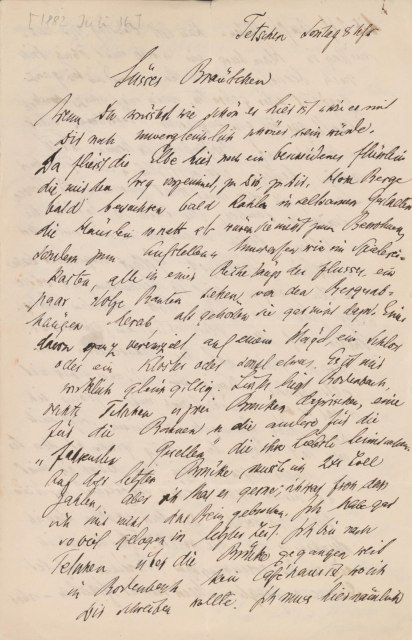 [1882 Juli 16]
Tetschen Sonntag 8 Uhr
Süsses Bräutchen
Wenn Du wüsstest wie schön es hier ist u wie es mit
Dir noch unvergleichlich schöner sein würde.
Da fliesst die Elbe hier noch ein bescheidenes Flüsslein
die mit den Weg zu Dir Hohe Berge
bald bewachsen bald kahlen in seltsamen Gestalten
die Häuslein so nett als wären sie nicht zum Bewohnen,
sondern zum Aufstellen wie ein Spielerei-
kasten, alle in einer Reihe längs des Flusses, ein
paar stolze Bauten sehen von den Bergab-
hängen herab als gehörten sie gar nicht dazu. Eins
davon ganz vereinzelt auf einem Hügel, ein Schloss
oder ein Kloster oder sonst etwas. Es ist mir
wirklich gleichgiltig. Links liegt Bodenbach,
rechts Tetschen u zwei Brücken dazwischen, eine
für die Bahnen u die andere für die
" Gesellen" die ihre
auf der letzten Brücke musste ich 2 kr Zoll
zahlen, aber ich that es gerne; ich war froh dass
ich mir nicht das Bein gebrochen. Ich habe gar
so viel gelogen in letzter Zeit. Ich bin nach
Tetschen über die Brücke gegangen weil
in Bodenbach kein Caféhaus ist, wo ich
Dir schreiben wollte. Ich muss hier nämlich